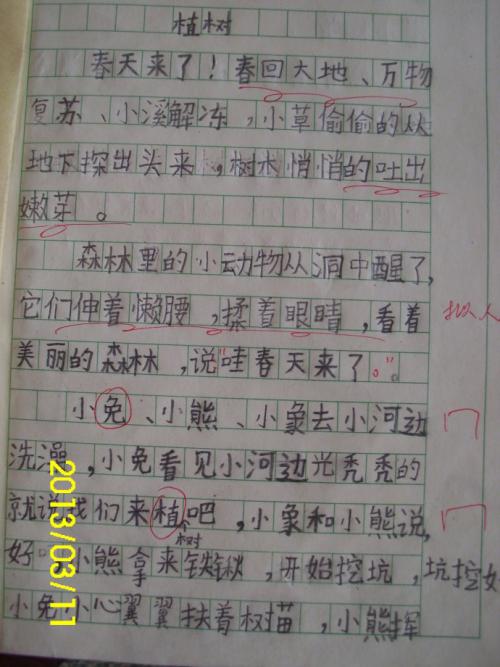 植树
春天来了！春回大地、万物
复苏、小溪解冻，小草偷偷的从
地下探出头来，树木悄悄的吐出
嫩芽。
森林里的小动物从洞中醒了，
它们伸着懒腰，揉着眼睛，看着 拟人
美丽的森林，说“哇春天来了。”。
小免、小熊、小象去小河边
洗澡，小免看见小河边光秃秃的
就说我们来植吧，小象和小熊说，
树
好 小熊拿来铁锹，开始挖坑，坑挖好
小免小心翼翼扶着树苗，小熊挥
2013/03/11